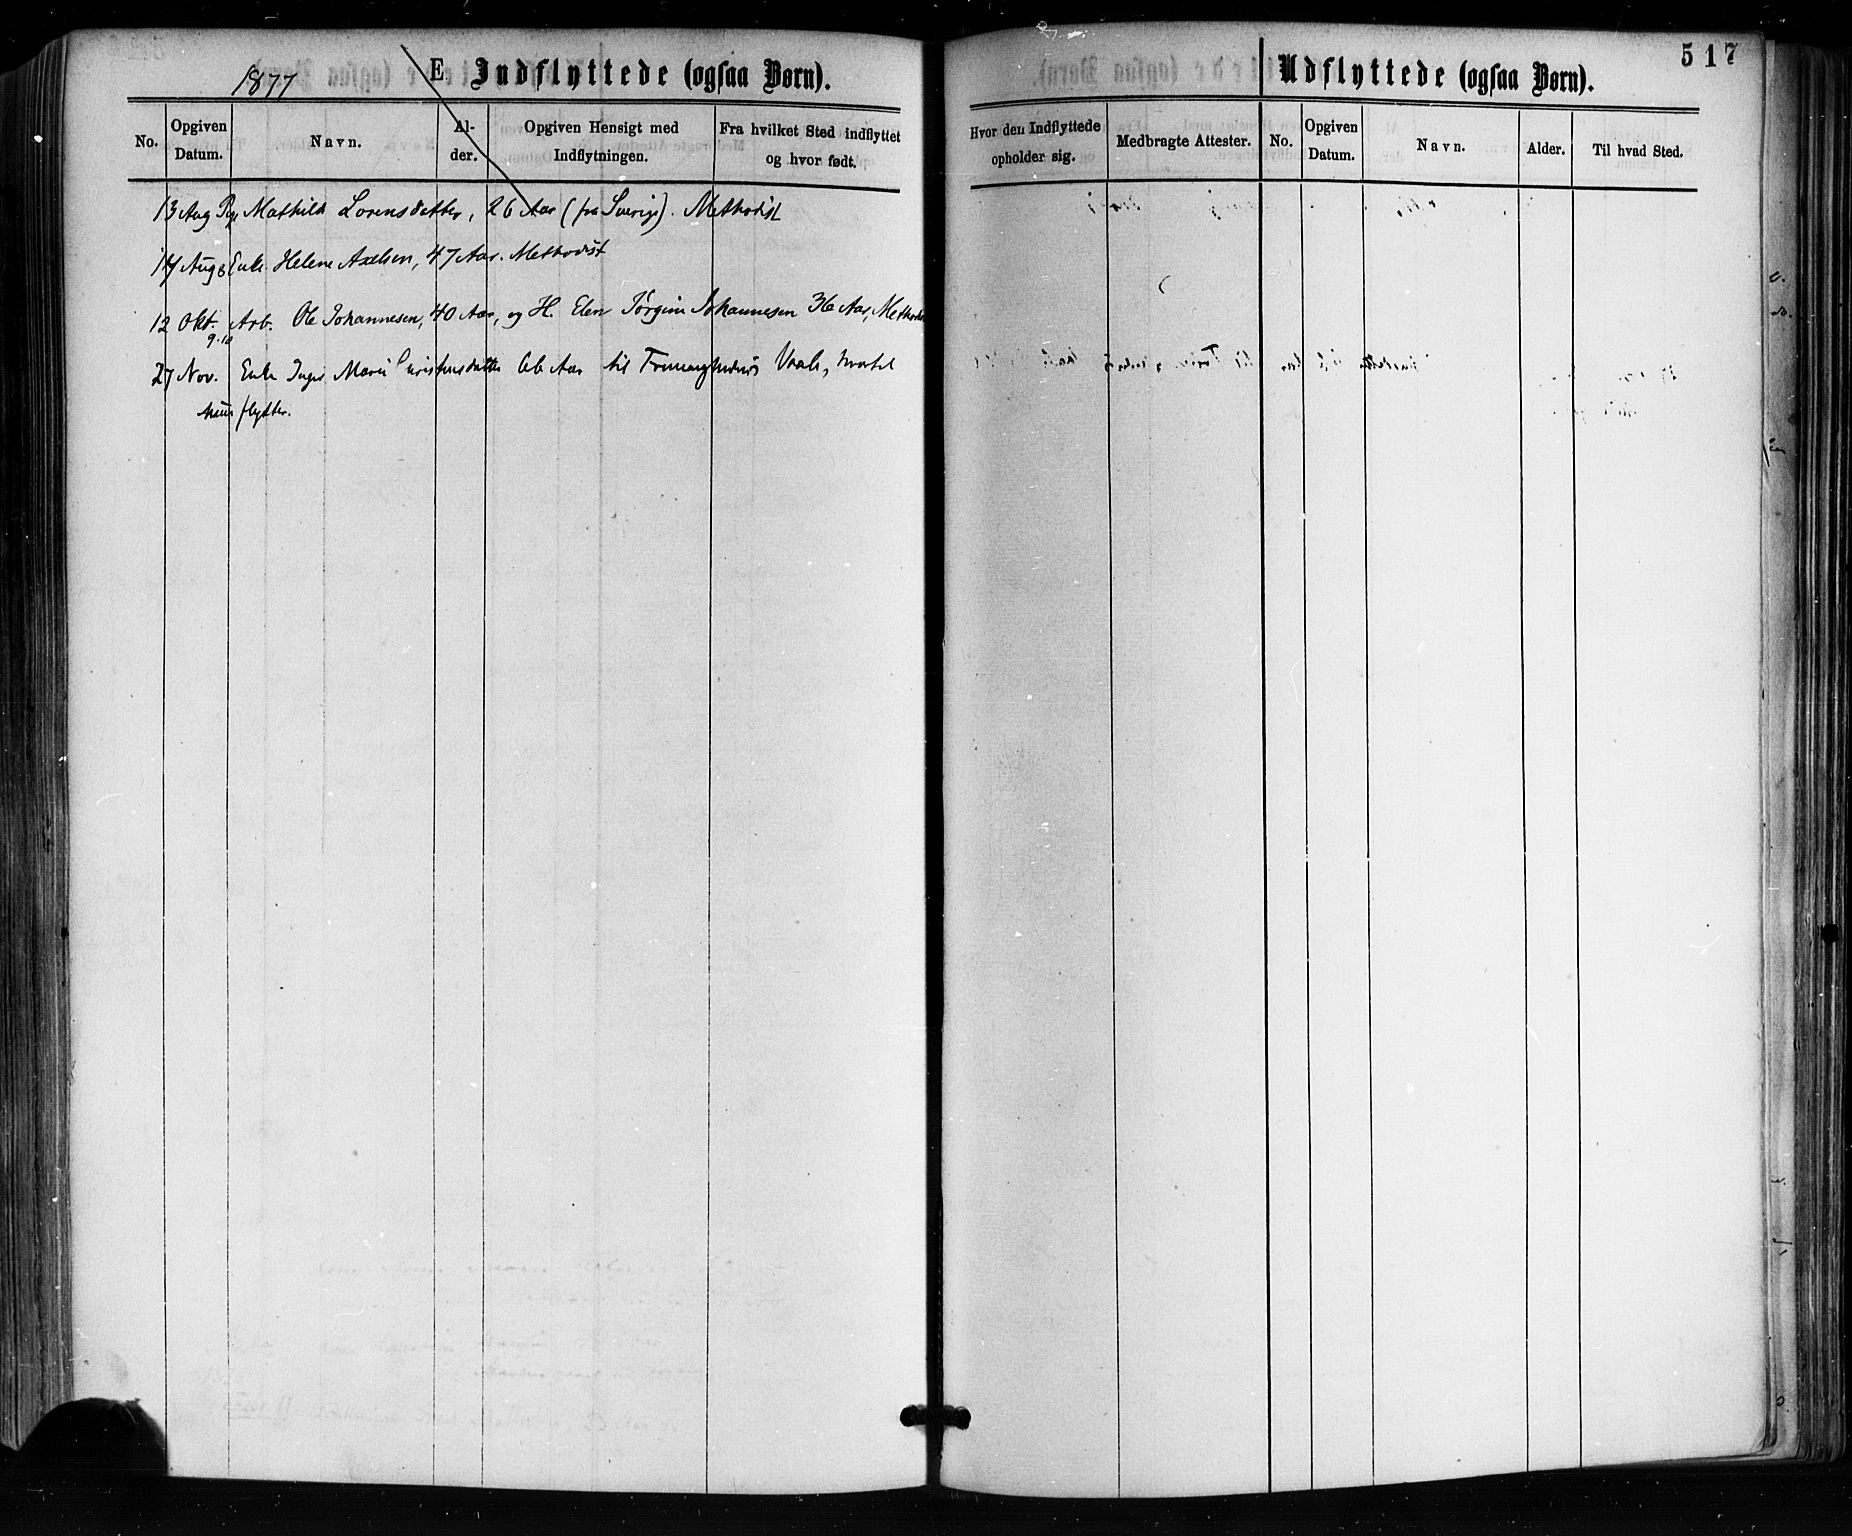 1877
E Indflyttede (ogsaa Børn).
No. Opgiven Datum. Navn. Alder. Opgiven Hensigt med Indflytningen. Fra hvilket Sted indflyttet og hvor født.
13 Aug Pge Mathild Lorensdatter, 26 Aar (fra Sverige). Methodist
14 Aug Enke Helene Axelsen, 47 Aar. Methodist
12 Okt. Arb. Ole Johannesen, 40 Aar, og H. Elen Jørgine Johannesen 36 Aar, Methodist
9.10
27 Nov. Enke Inger Marie Christensdatter Aar til Vaale, hvortil
flytter.
517
Udflyttede (ogsaa Børn).
Hvor den Indflyttede opholder sig. Medbragte Attester. No. Opgiven Datum. Navn. Alder. Til hvad Sted.